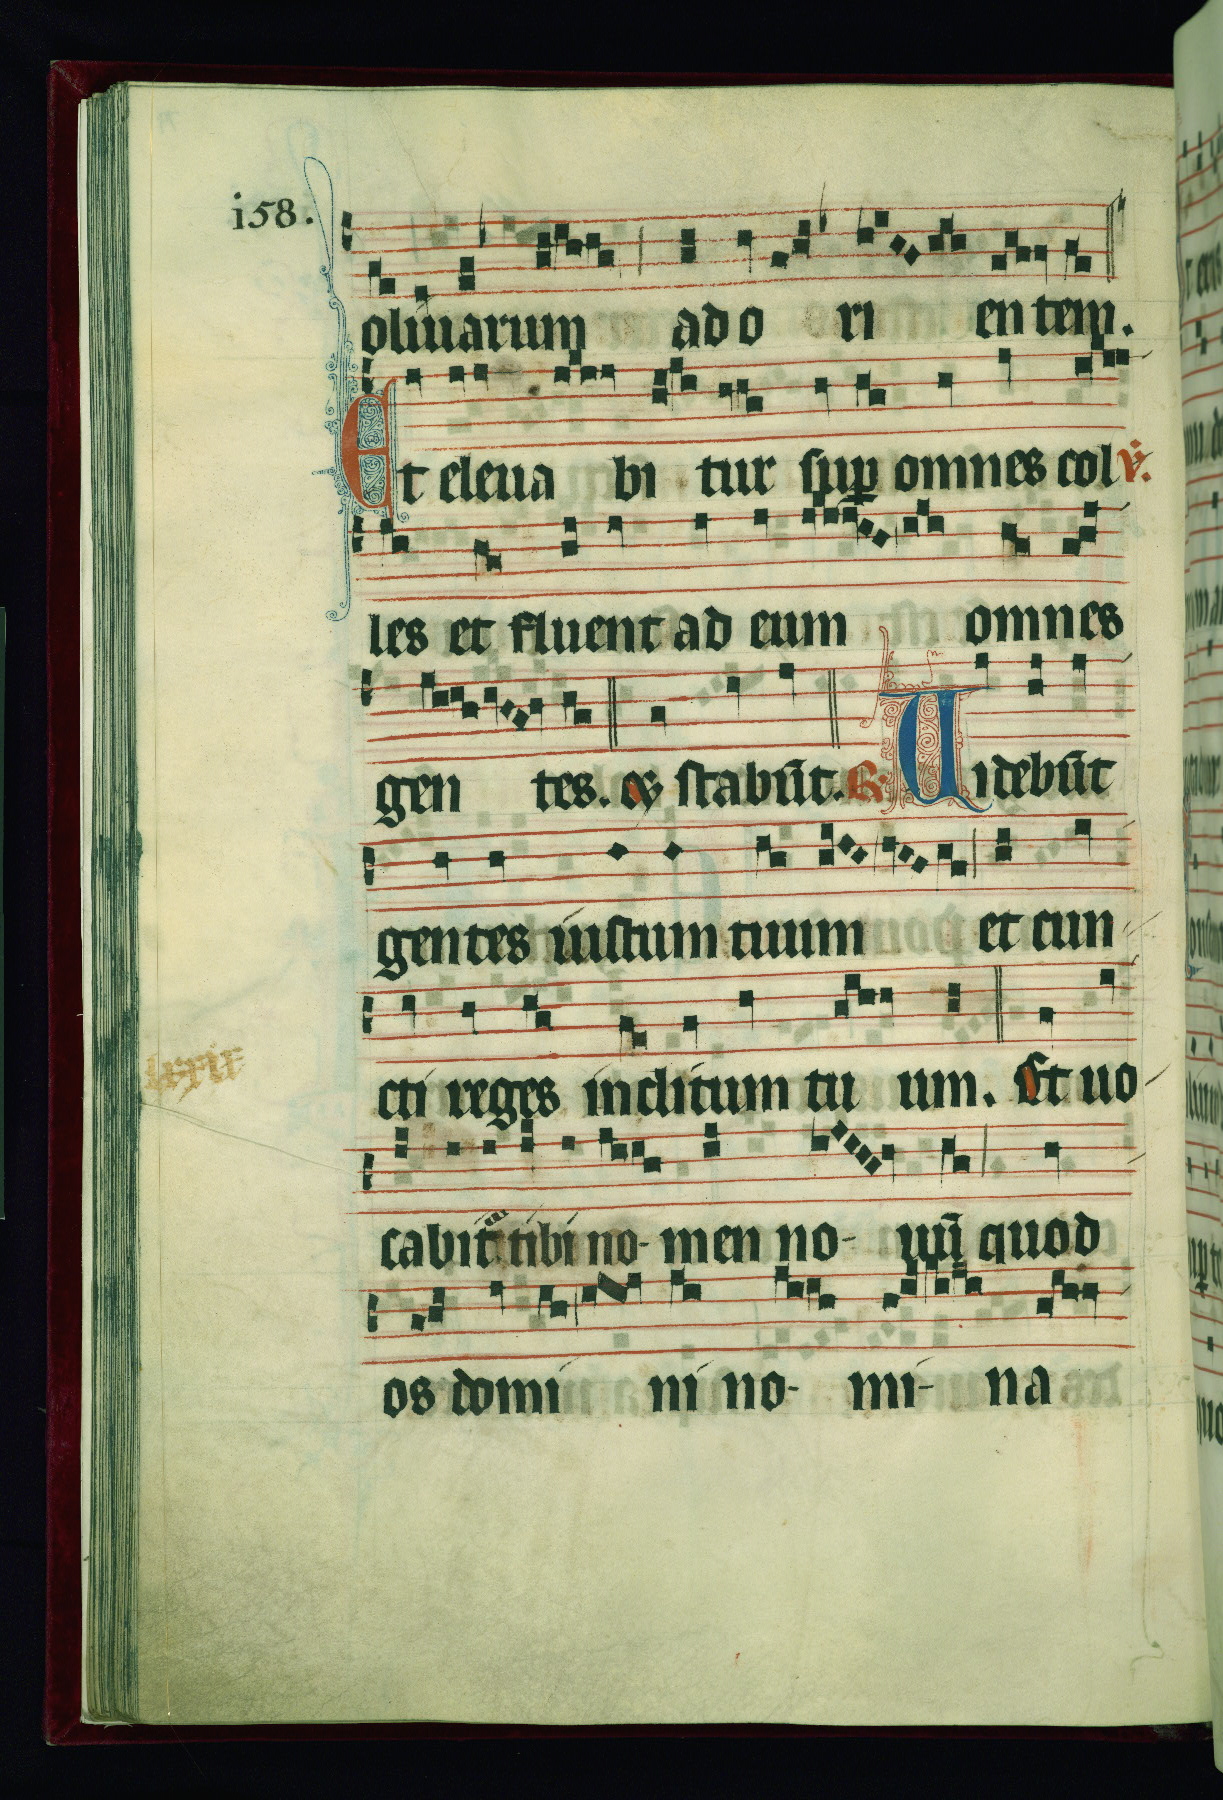 i58.
oliuarum ad o ri en tem.
Et eleua bi tur sup omnes col v.
les et fluent ad eum omnes
gen tes. Q stabūt. R. Uidebūt
gentes iustum tuum et cun
cti reges inclitum tu um. Et uo
cabit tibi no- men no- uū quod
os domi ni no- mi- na